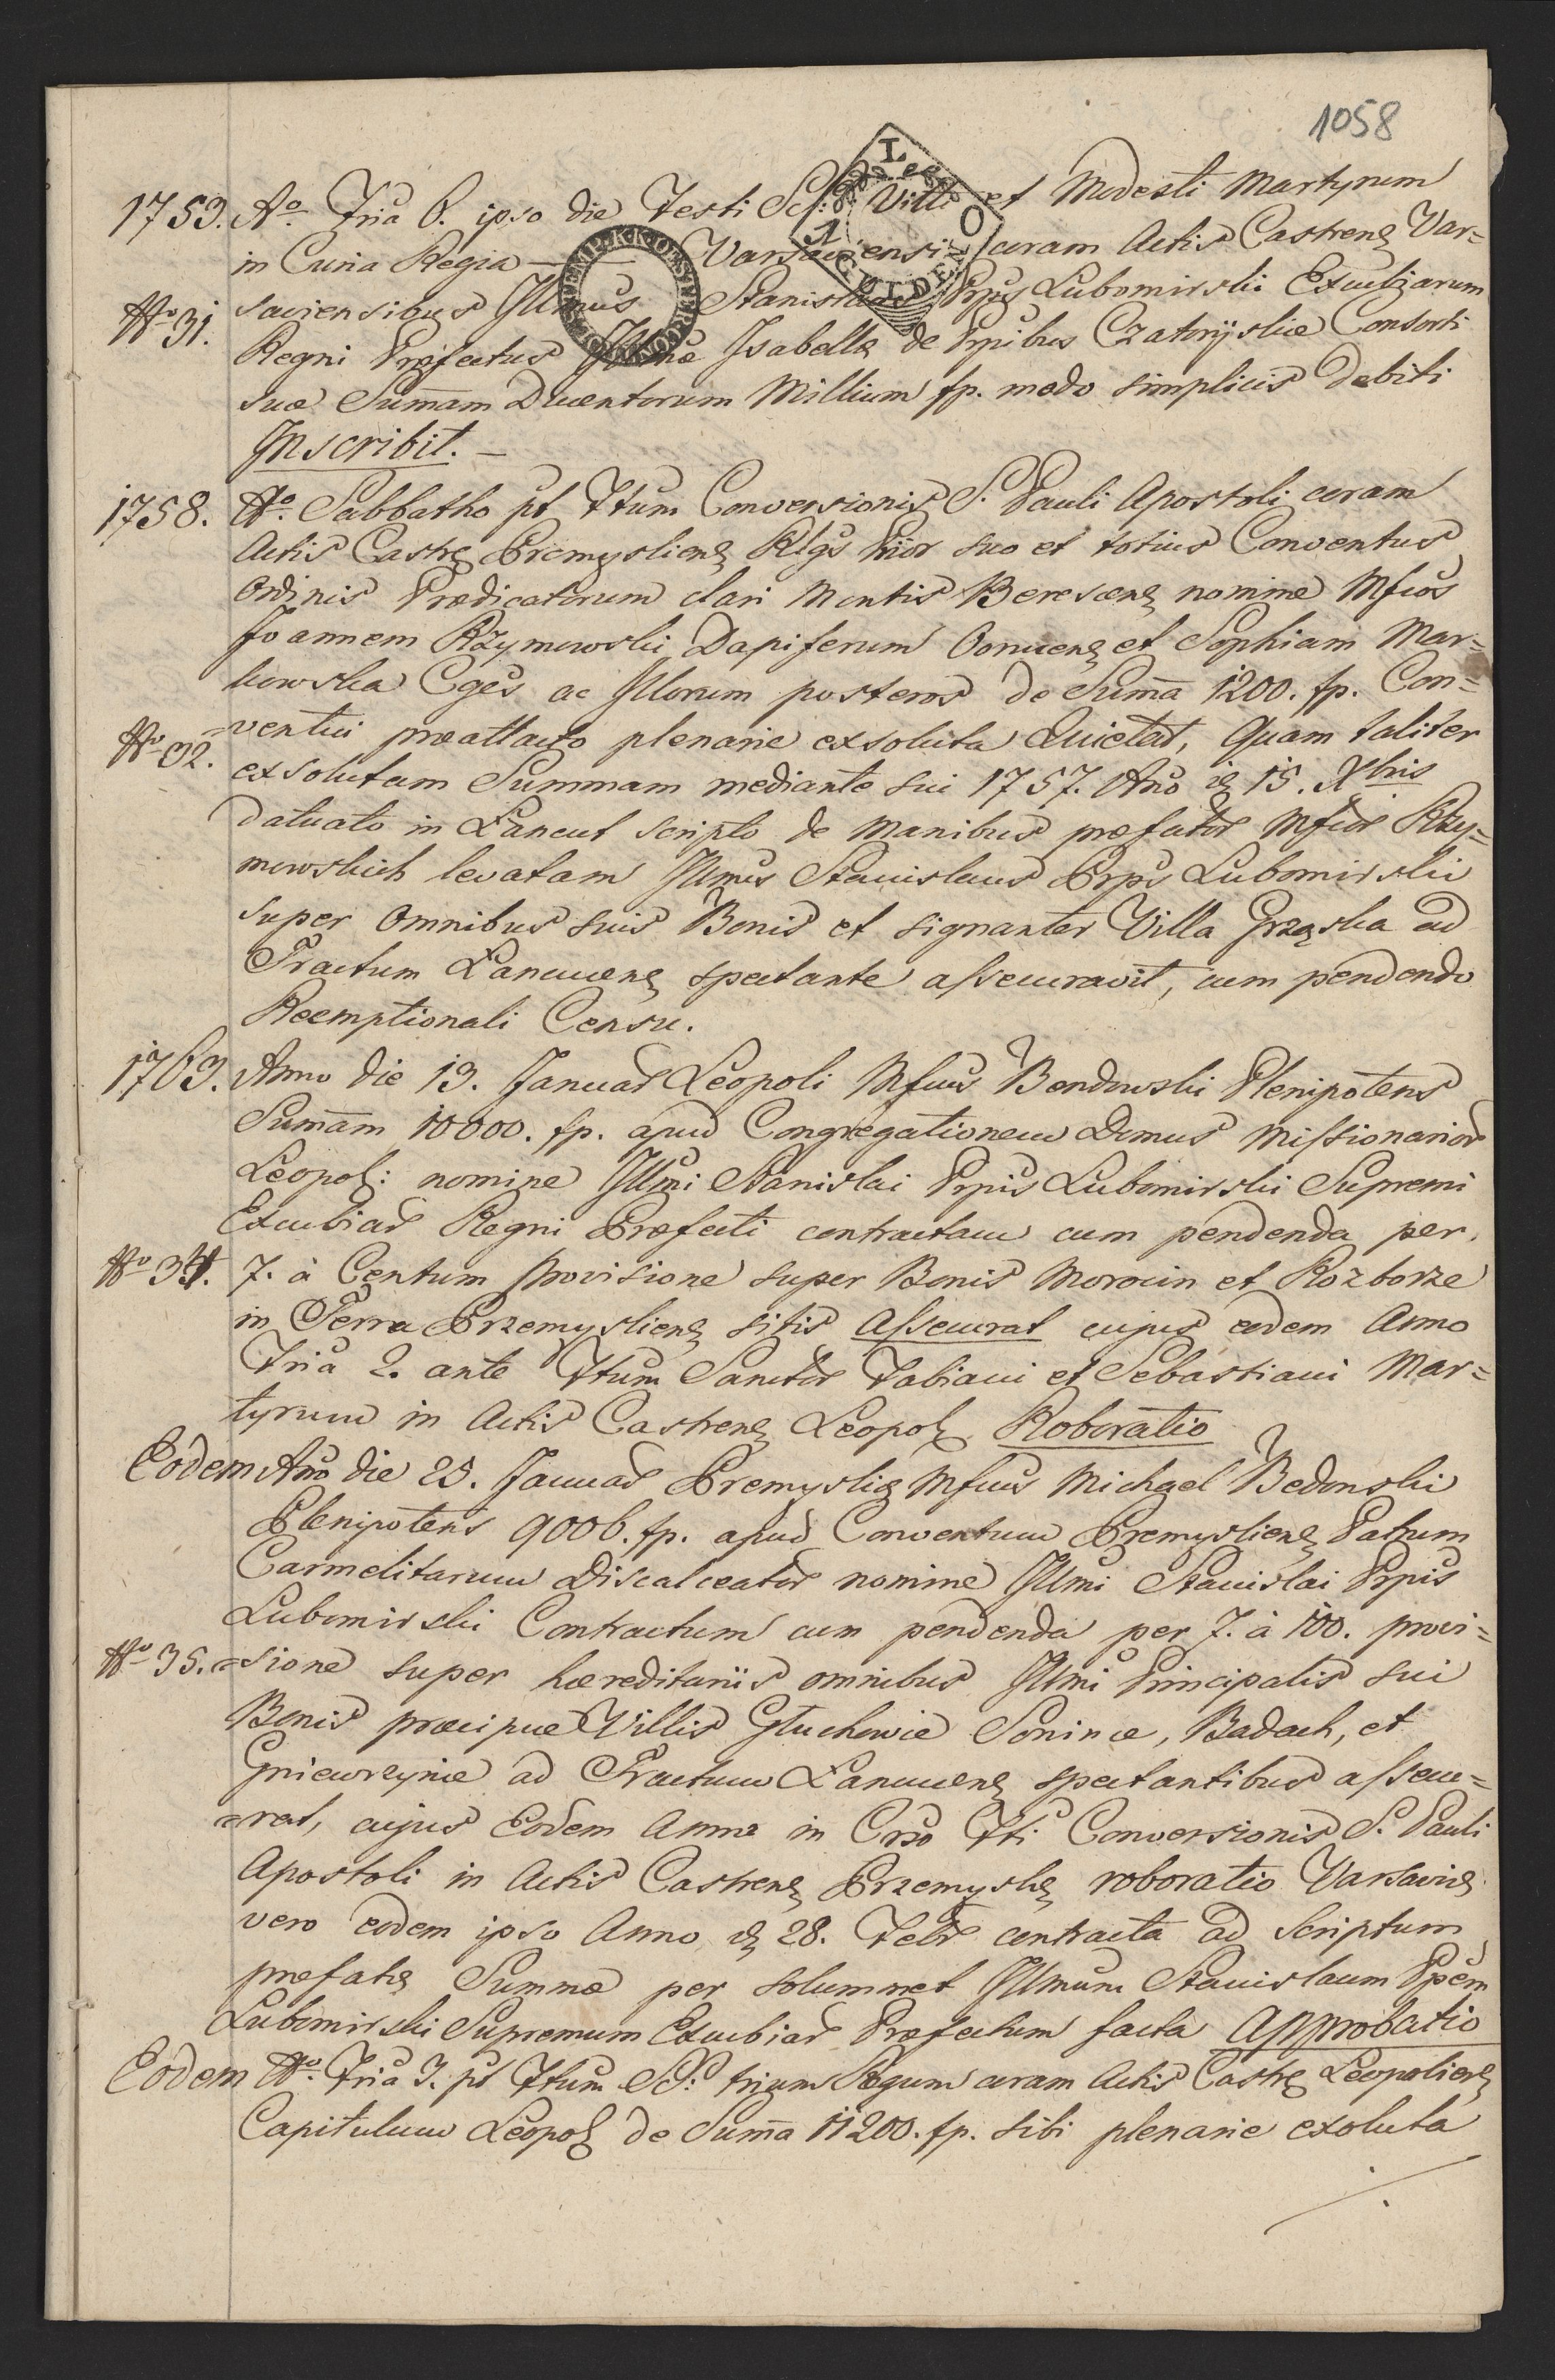 1058
1753. Ao. Fria 6. ipso die Festi Scŕ: Viti et Modesti Martyrum
in Curia Regia — Varsaviensi coram Actis Castrens Var=
No 31. saviensibus Illmus Stanislaus Prps Lubomirski Excubiarum
Regni Præfectus Illmæ Isabellæ de Prpibus Czatoryiskie Consorti
suæ Sum̄am Ducentorum Millium fp. modo simplicis Debiti
Inscribit. —
1758. Ao. Sabbatho pt Ftum Conversionis S. Pauli Apostoli coram
Actis Castrs Premysliens Rlgs Prior suo et totius Conventus
Ordinis Prædicatorum clari Montis Berescens nomine Mfcos
Joannem Rzymowski Dapiferum et Sophiam Mar=
kowska Cges ac Illorum posteros de Sum̄a 1200. fp. Con=
No 32. =ventui præattacto plenarie exsoluta Quietat, Quam taliter
exsolutam Summam mediante sui 1757. Ano d 15. Xbris
datuato in Łancut scripto de manibus præfator Mfcor Rzy=
mowskich levatam Illmus Stanislaus Prps Lubomirski
super omnibus suis Bonis et signanter Villa Grzęska ad
Tractum Łancucens spectante assecuravit, cum pendendo
Reemptionali Censu.
1763. Anno die 13. Januar Leopoli Mfcus Bendowski Plenipotens
Sum̄am 10000. fp. apud Congregationem Domus Missionarior
Leopol: nomine Illmi Stanislai Prpis Lubomirski Supremi
Excubiar Regni Præfecti contractam cum pendenda per.
No 34. 7. à Centum provisione super Bonis Morocin et Rozborze
in Terra Przemysliens sitis Assecurat cujus eodem Anno
Fria 2. ante Ftum Sanctor Fabiani et Sebastiani Mar=
tyrum in Actis Castrens Leopol Roboratio
Eodem Ano die 25. Januar Premyslis Mfcus Michael Bedonski
Plenipotens 9006. fp. apud Conventum Premysliens Patrum
Carmelitarum Discalceator nomine Illmi Stanislai Prpis
Lubomirski Contractum cum pendenda per 7. à 100. provi=
No 35. =sione super hæreditariis omnibus Illmi Principalis sui
Bonis præcipue Villis Głuchowie Soninæ, Badach, et
Gniewczynie ad Tractum Łancucens spectantibus assecu=
=rat, cujus Eodem Anno in Crso Fti Conversionis S. Pauli
Apostoli in Actis Castrens Przemysls roboratio Varsavies
vero eodem ipso Anno d 28. Febr contracta ad Scriptum
præfats Summæ per solummet Illmum Stanislaum Ppem
Lubomirski Supremum Excubiar Præfectum facta Approbatio
Eodem Ao. Fria 3. pt Ftum SS: trium Regum coram Actis Castrs Leopoliens
Capitulum Leopol de Sum̄a 11200. fp. sibi plenarie exoluta